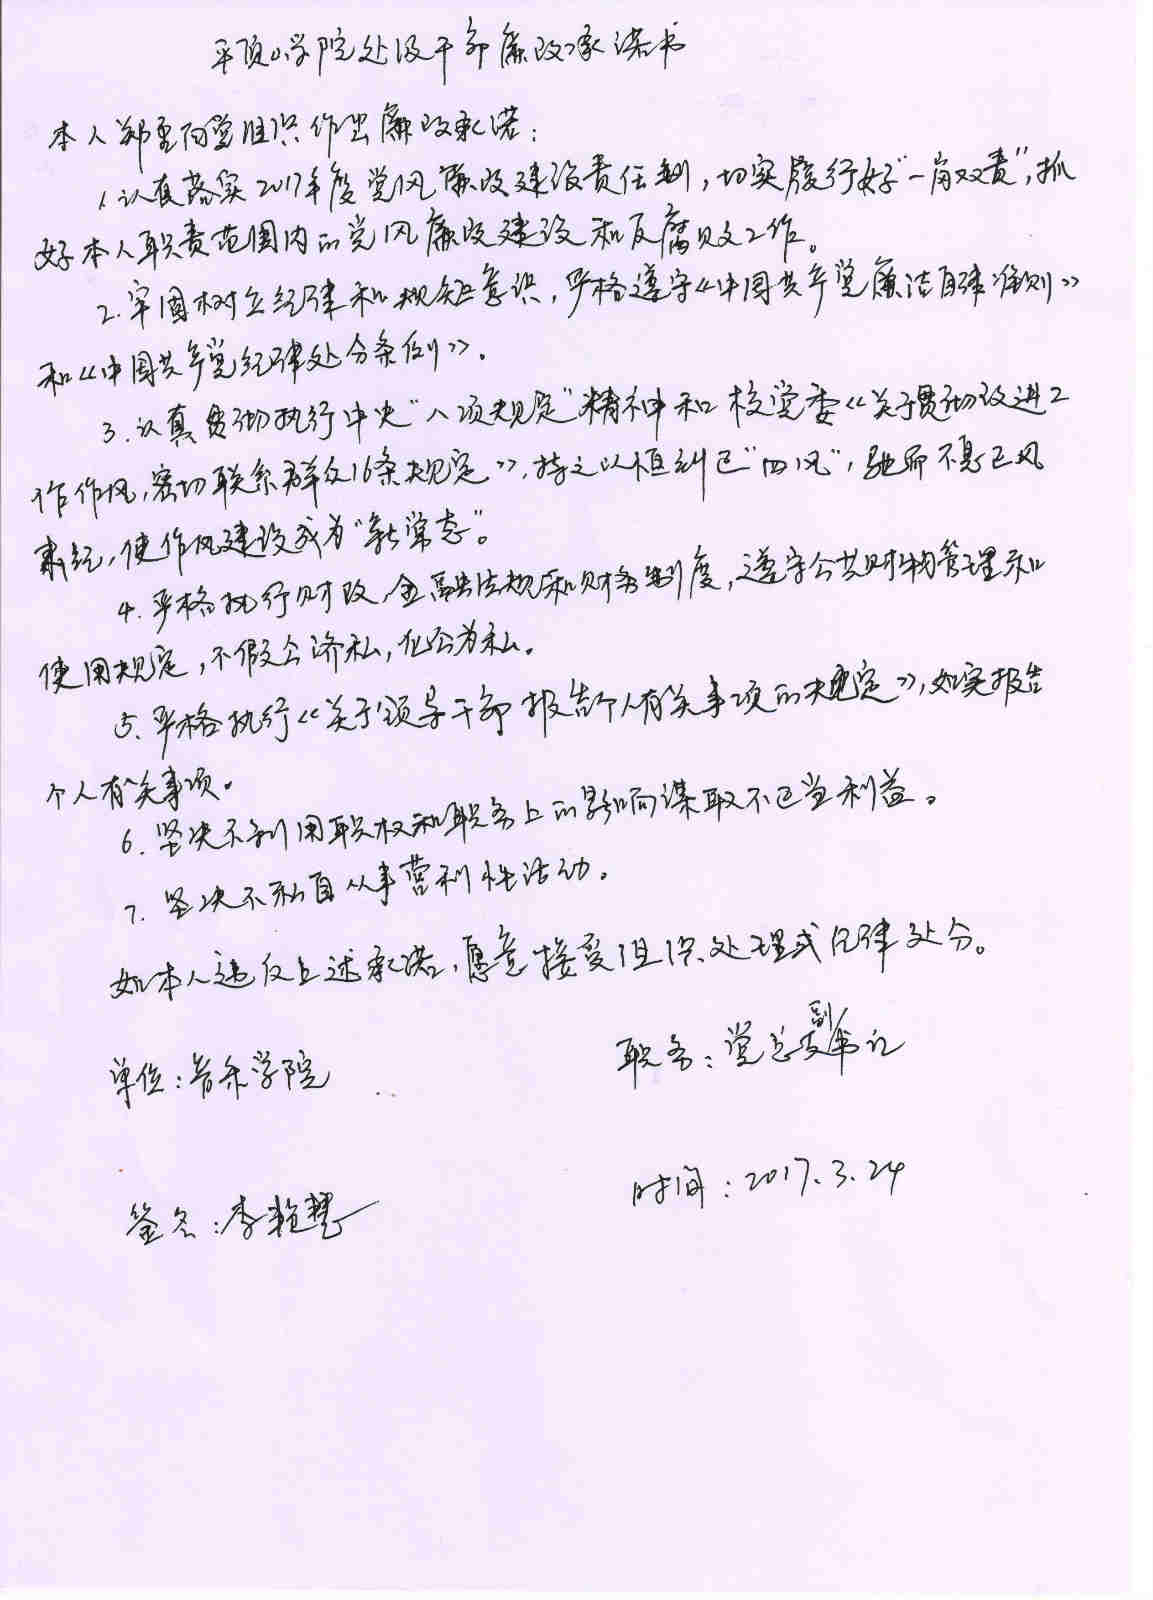 平顶山学院处级干部廉政承诺书
本人郑重向党组织作出廉政承诺：
1.认真落实2017年度党风廉政建设责任制，切实履行好“一岗双责”，抓
好本人职责范围内的党风廉政建设和反腐败工作。
2.牢固树立纪律和规矩意识，严格遵守《中国共产党廉洁自律准则》
和《中国共产党纪律处分条例》。
3.认真贯彻执行中央“八项规定”精神和校党委《关于贯彻改进工
作作风，密切联系群众16条规定》，持之以恒纠正“四风”，驰而不息正风
肃纪，使作风建设成为“新常态”。
4.严格执行财政、金融法规和财务制度，遵守公共财物管理和
使用规定，不假公济私，化公为私。
5.严格执行《关于领导干部报告个人有关事项的规定》，如实报告
个人有关事项。
6.坚决不利用职权和职务上的影响谋取不正当利益。
7.坚决不私自从事营利性活动。
如本人违反上述承诺，愿意接受组织处理或纪律处分。
单位：音乐学院
职务：党总支副书记
签名：李艳慧
时间：2017.3.24